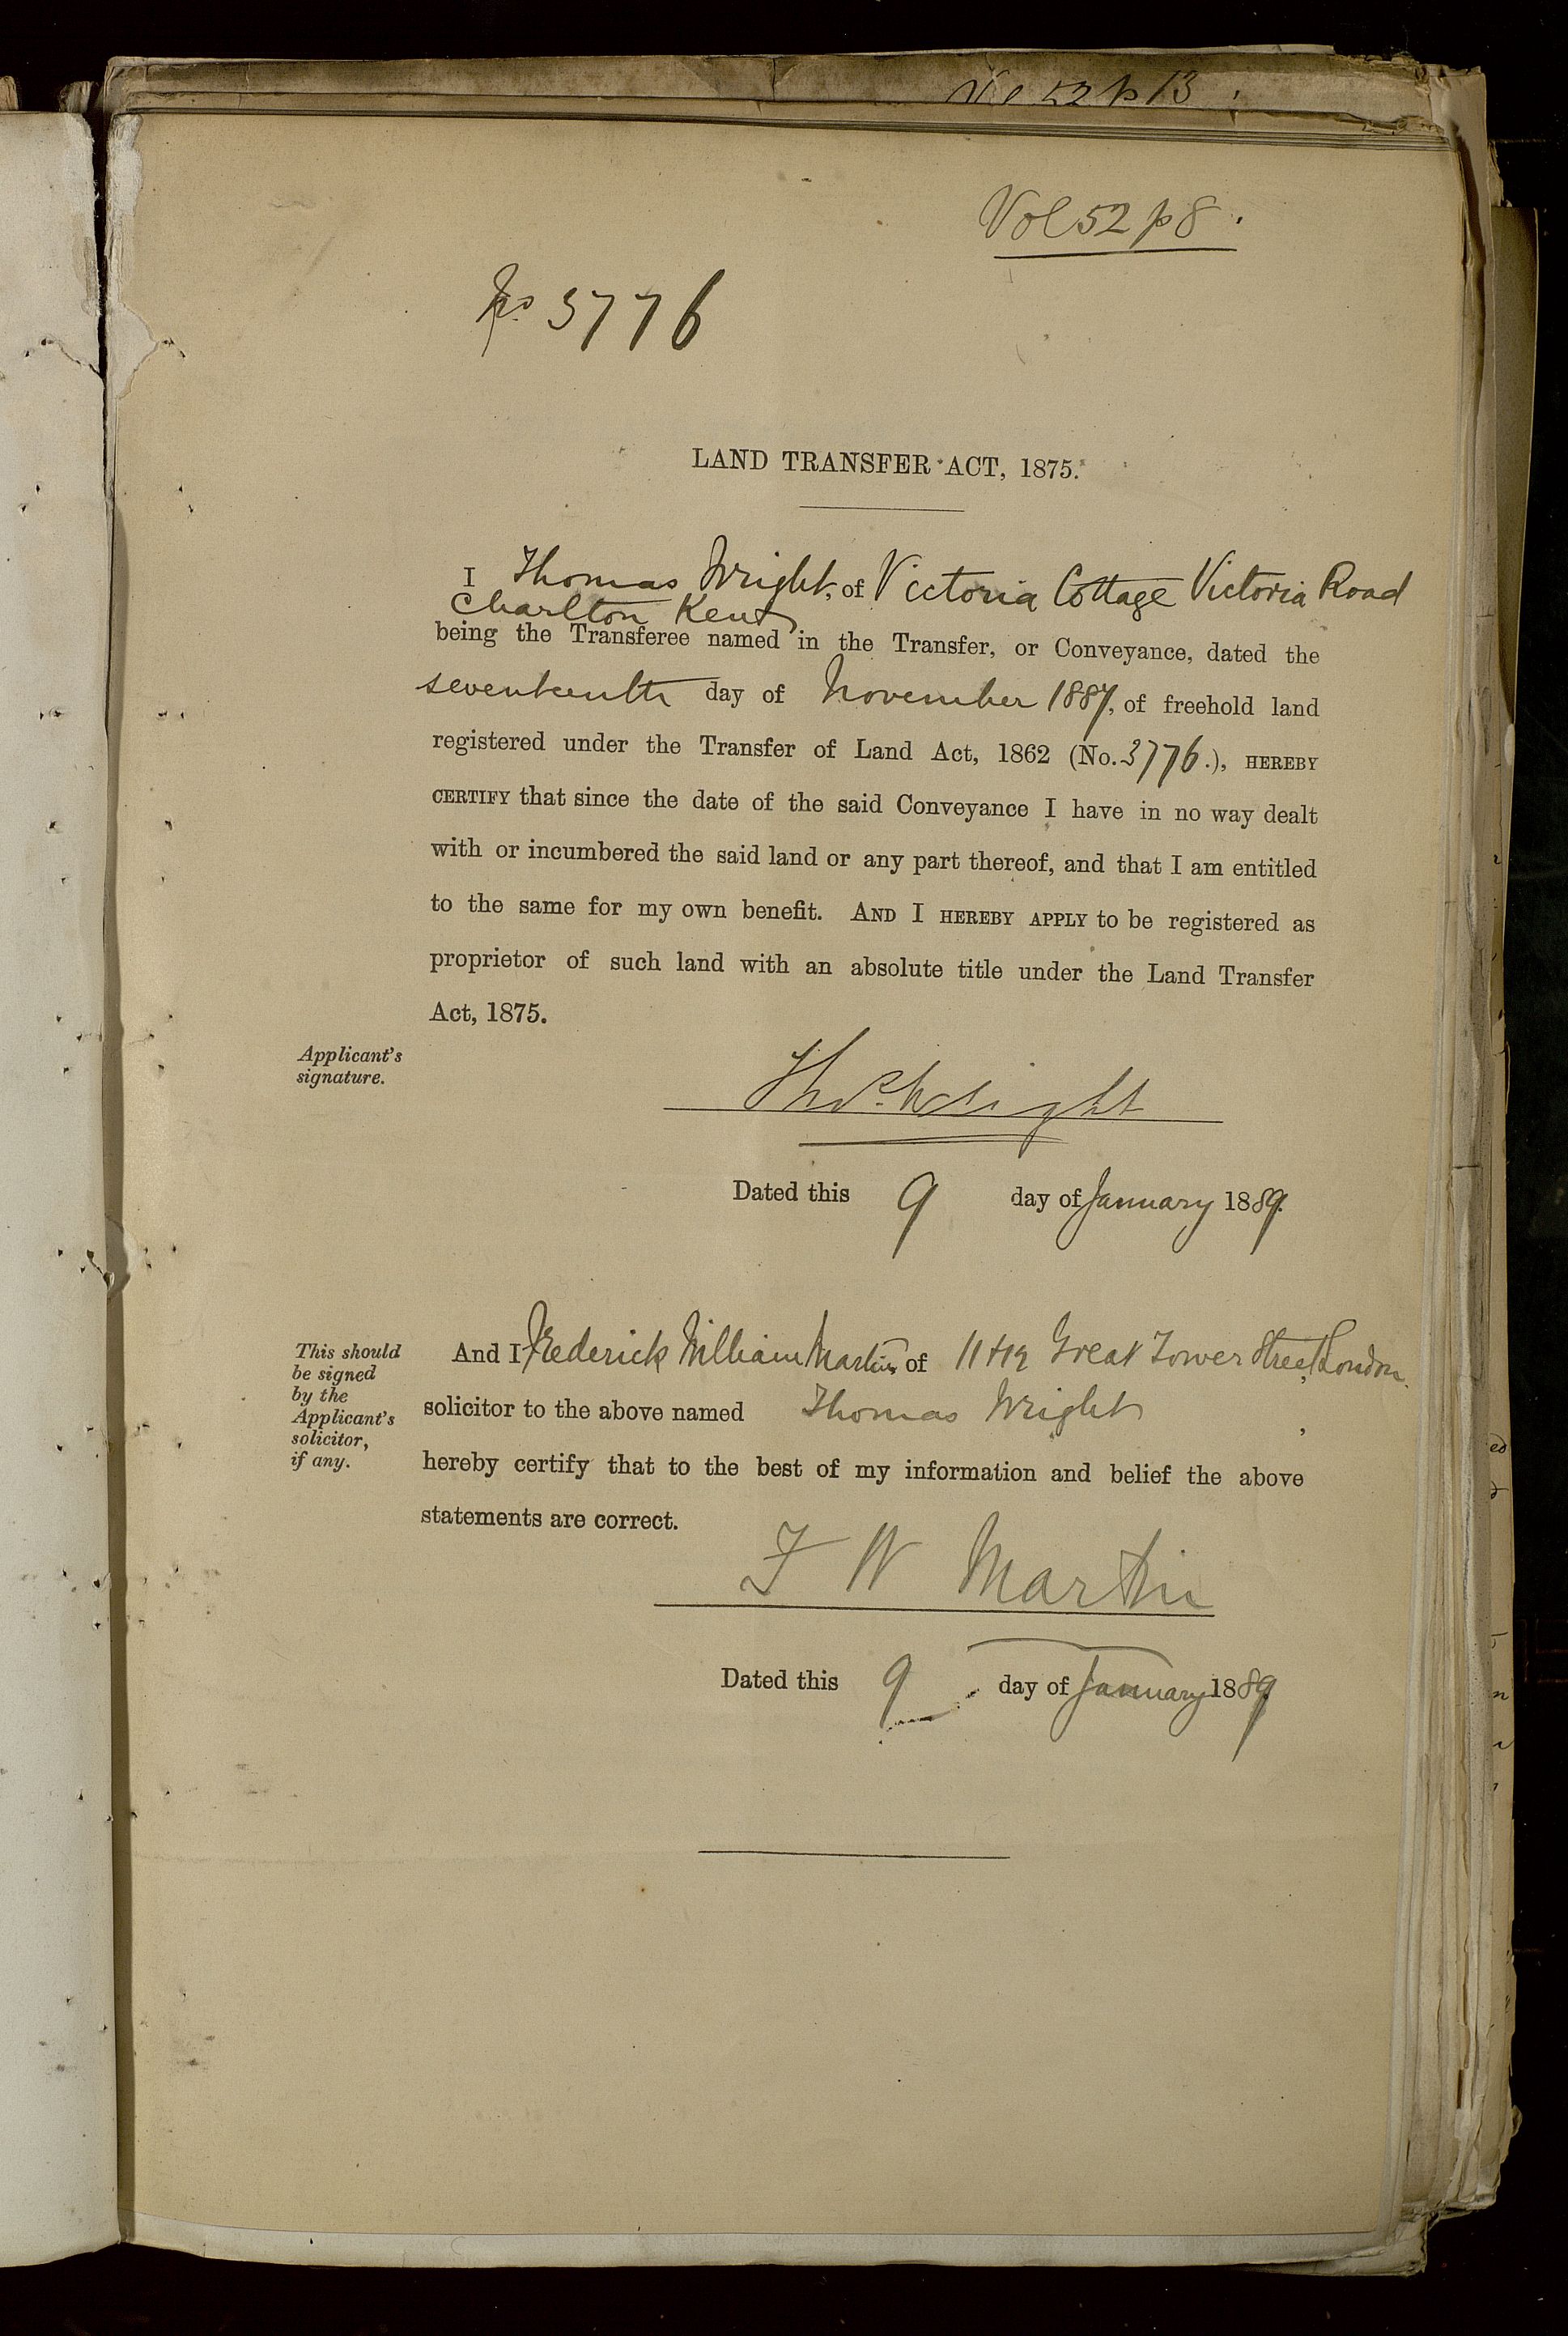 Vol 52 p 13
Vol 52 p 8.
No 3776
LAND TRANSFER ACT, 1875.
I Thomas Wright, of Victoria Cottage Victoria Road
Charlton Kent
being the Transferee named in the Transfer, or Conveyance, dated the
seventeenth day of November 1887, of freehold land
registered under the Transfer of Land Act, 1862 (No. 3776.), HEREBY
CERTIFY that since the date of the said Conveyance I have in no way dealt
with or incumbered the said land or any part thereof, and that I am entitled
to the same for my own benefit. AND I HEREBY APPLY to be registered as
proprietor of such land with an absolute title under the Land Transfer
Act, 1875.
Applicant's
signature.
Thos. Wright
Dated this 9 day of January 1889.
This should
be signed
by the
Applicant's
solicitor,
if any.
And I Frederick William Martin, of 11 & 12 Great Tower Street, London.
solicitor to the above named Thomas Wright,
hereby certify that to the best of my information and belief the above
statements are correct.
F W Martin
Dated this 9 day of January 1889